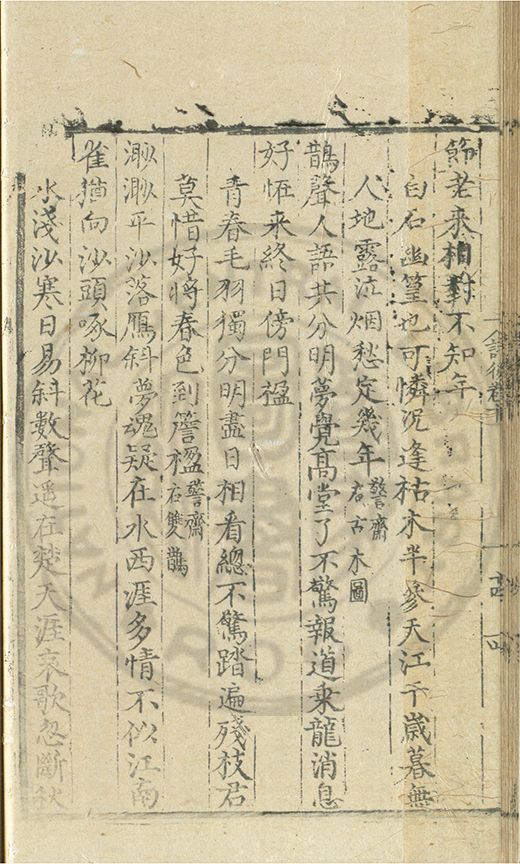 節老來相對不知年
白石幽篁也可憐況逢枯木半參天江千歲暮無
人地露泣烟愁定幾年 警齋
右古木圖
鵲聲人語共分明夢覺高堂了不驚報道乗龍消息
好恠来終日傍門楹
青春毛羽獨分明盡日相看總不驚踏遍殘枝君
莫惜好將春色到簷楹 警齋
右雙鵲
渺渺平沙落鴈斜夢魂疑在水西涯多情不似江南
雀猶向沙頭啄柳花
水淺沙寒日易斜數聲遥在楚天涯哀歌忽斷秋